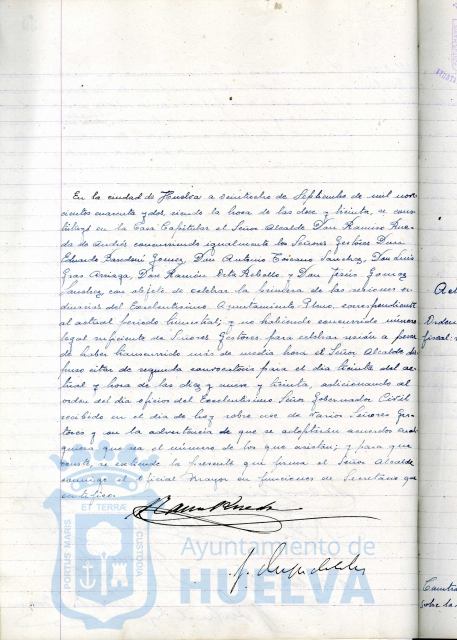 En la ciudad de Huelva a veintisiete de Septiembre de mil nove-
cientos cuarenta y dos, siendo la hora de las doce y treinta, se cons-
tituyó en la Casa Capitular el Señor Alcalde Don Ramiro Rue-
da de Andrés concurriendo igualmente los Señores Gestores Don
Eduardo Gomez, Don Antonio Toscano Sanchez, Don Luis
Gras Arriaga, Don Ramón Rebollo y Don Jesús Gomez
Sanchez con objeto de celebrar la primera de las sesiones or-
dinarias del Excelentísimo Ayuntamiento Pleno, correspondiente
al actual periodo trimestral; y no habiendo concurrido número
legal suficiente de Señores Gestores para celebrar sesión a pesar
de haber transcurrido más de media hora el Señor Alcalde dis-
puso citar de segunda convocatoria para el día treinta del ac-
tual y hora de las diez y nueve y treinta, adicionando al
orden del día oficio del Excelentísimo Señor Gobernador Civil
recibido en el día de hoy sobre cese de varios Señores Ges-
tores y con la advertencia de que se adoptarán acuerdos cual-
quiera que sea el número de los que asistan; y para que
conste, se extiende la presente que firma el Señor Alcalde
conmigo el Oficial Mayor en funciones de Secretario que
certifico.
Ramiro Rueda
PORTUS MARIS
ET TERRÆ
CUSTODIA
Ayuntamiento de
HUELVA
Orden
fiscal:
sobre la